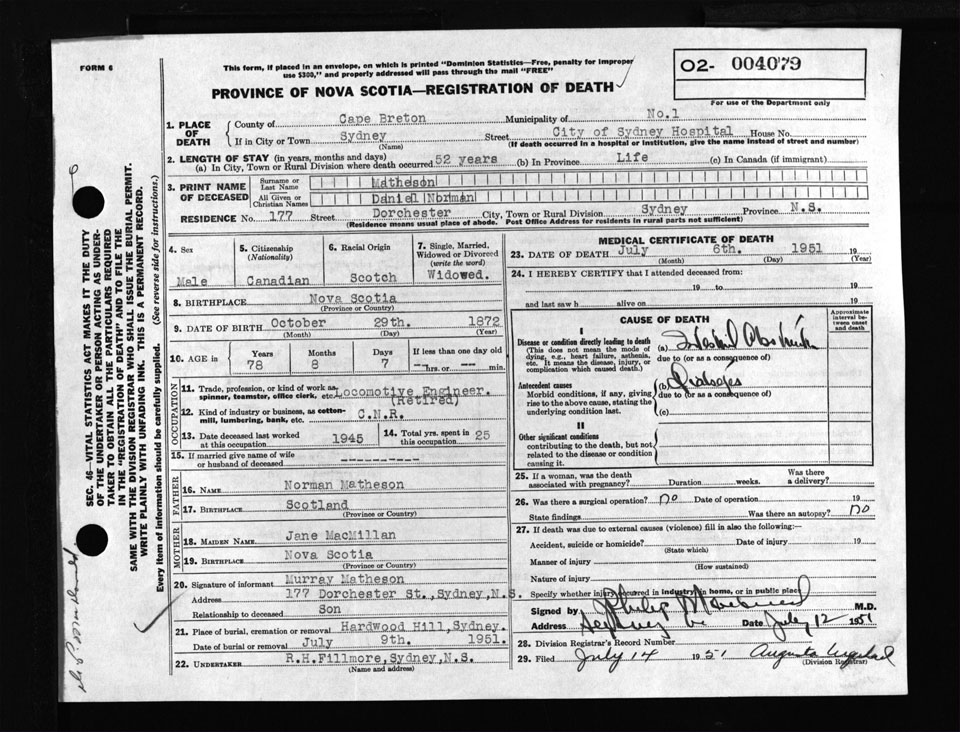 FORM 6
This form, if placed in an envelope, on which is printed "Dominion Statistics—Free, penalty for improper
use $300," and properly addressed will pass through the mail "FREE"
O2- 004079
For use of the Department only
PROVINCE OF NOVA SCOTIA—REGISTRATION OF DEATH
1. PLACE OF DEATH County of Cape Breton Municipality of No.1
If in City or Town Sydney (Name) Street City of Sydney Hospital House No.
(If death occurred in a hospital or institution, give the name instead of street and number)
2. LENGTH OF STAY (in years, months and days)
(a) In City, Town or Rural Division where death occurred 52 years (b) In Province Life (c) In Canada (if immigrant)
3. PRINT NAME OF DECEASED Surname or Last Name Matheson
All Given or Christian Names Daniel Norman
RESIDENCE No. 177 Street Dorchester City, Town or Rural Division Sydney Province N.S.
(Residence means usual place of abode. Post Office Address for residents in rural parts not sufficient)
4. Sex Male
5. Citizenship (Nationality) Canadian
6. Racial Origin Scotch
7. Single, Married, Widowed or Divorced (write the word) Widowed.
8. BIRTHPLACE Nova Scotia
(Province or Country)
9. DATE OF BIRTH October 29th. 1872
(Month) (Day) (Year)
10. AGE in Years Months Days If less than one day old
78 8 7 hrs. min.
OCCUPATION
11. Trade, profession, or kind of work as spinner, teamster, office clerk, etc. Locomotive Engineer.
(Retired)
12. Kind of industry or business, as cotton-mill, lumbering, bank, etc. C.N.R.
13. Date deceased last worked at this occupation 1945
14. Total yrs. spent in this occupation 25
15. If married give name of wife or husband of deceased ---------
FATHER
16. NAME Norman Matheson
17. BIRTHPLACE Scotland
(Province or Country)
MOTHER
18. MAIDEN NAME Jane MacMillan
19. BIRTHPLACE Nova Scotia
(Province or Country)
20. Signature of informant Murray Matheson
Address 177 Dorchester St.,Sydney,N.S.
Relationship to deceased Son
21. Place of burial, cremation or removal Hardwood Hill, Sydney.
Date of burial or removal July 9th. 1951.
22. UNDERTAKER R.H.Fillmore,Sydney,N.S.
(Name and address)
MEDICAL CERTIFICATE OF DEATH
23. DATE OF DEATH July 6th. 1951 19
(Month) (Day) (Year)
24. I HEREBY CERTIFY that I attended deceased from:
19 to 19
and last saw h alive on 19
CAUSE OF DEATH
Approximate interval between onset and death
I
Disease or condition directly leading to death
(This does not mean the mode of dying, e.g., heart failure, asthenia, etc. It means the disease, injury, or complication which caused death.)
(a)
due to (or as a consequence of)
Antecedent causes
Morbid conditions, if any, giving rise to the above cause, stating the underlying condition last.
(b)
due to (or as a consequence of)
(c)
II
Other significant conditions
contributing to the death, but not related to the disease or condition causing it.
25. If a woman, was the death associated with pregnancy? Duration weeks. Was there a delivery?
26. Was there a surgical operation? no Date of operation 19
State findings Was there an autopsy? no
27. If death was due to external causes (violence) fill in also the following:—
Accident, suicide or homicide? Date of injury 19
(State which)
Manner of injury
(How sustained)
Nature of injury
Specify whether injury occurred in industry, in home, or in public place
Signed by Philip M.D.
Address Sydney Date July 12 1951
28. Division Registrar's Record Number
29. Filed July 14 1951 Augusta
(Division Registrar)
SEC. 46—VITAL STATISTICS ACT MAKES IT THE DUTY
OF THE UNDERTAKER OR PERSON ACTING AS UNDER-
TAKER TO OBTAIN ALL THE PARTICULARS REQUIRED
IN THE "REGISTRATION OF DEATH" AND TO FILE THE
SAME WITH THE DIVISION REGISTRAR WHO SHALL ISSUE THE BURIAL PERMIT.
WRITE PLAINLY WITH UNFADING INK. THIS IS A PERMANENT RECORD.
Every item of information should be carefully supplied. (See reverse side for instructions.)